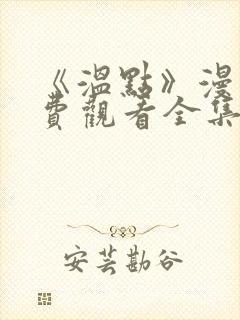 《溫點》漫
費觀看全集
安芸勘谷